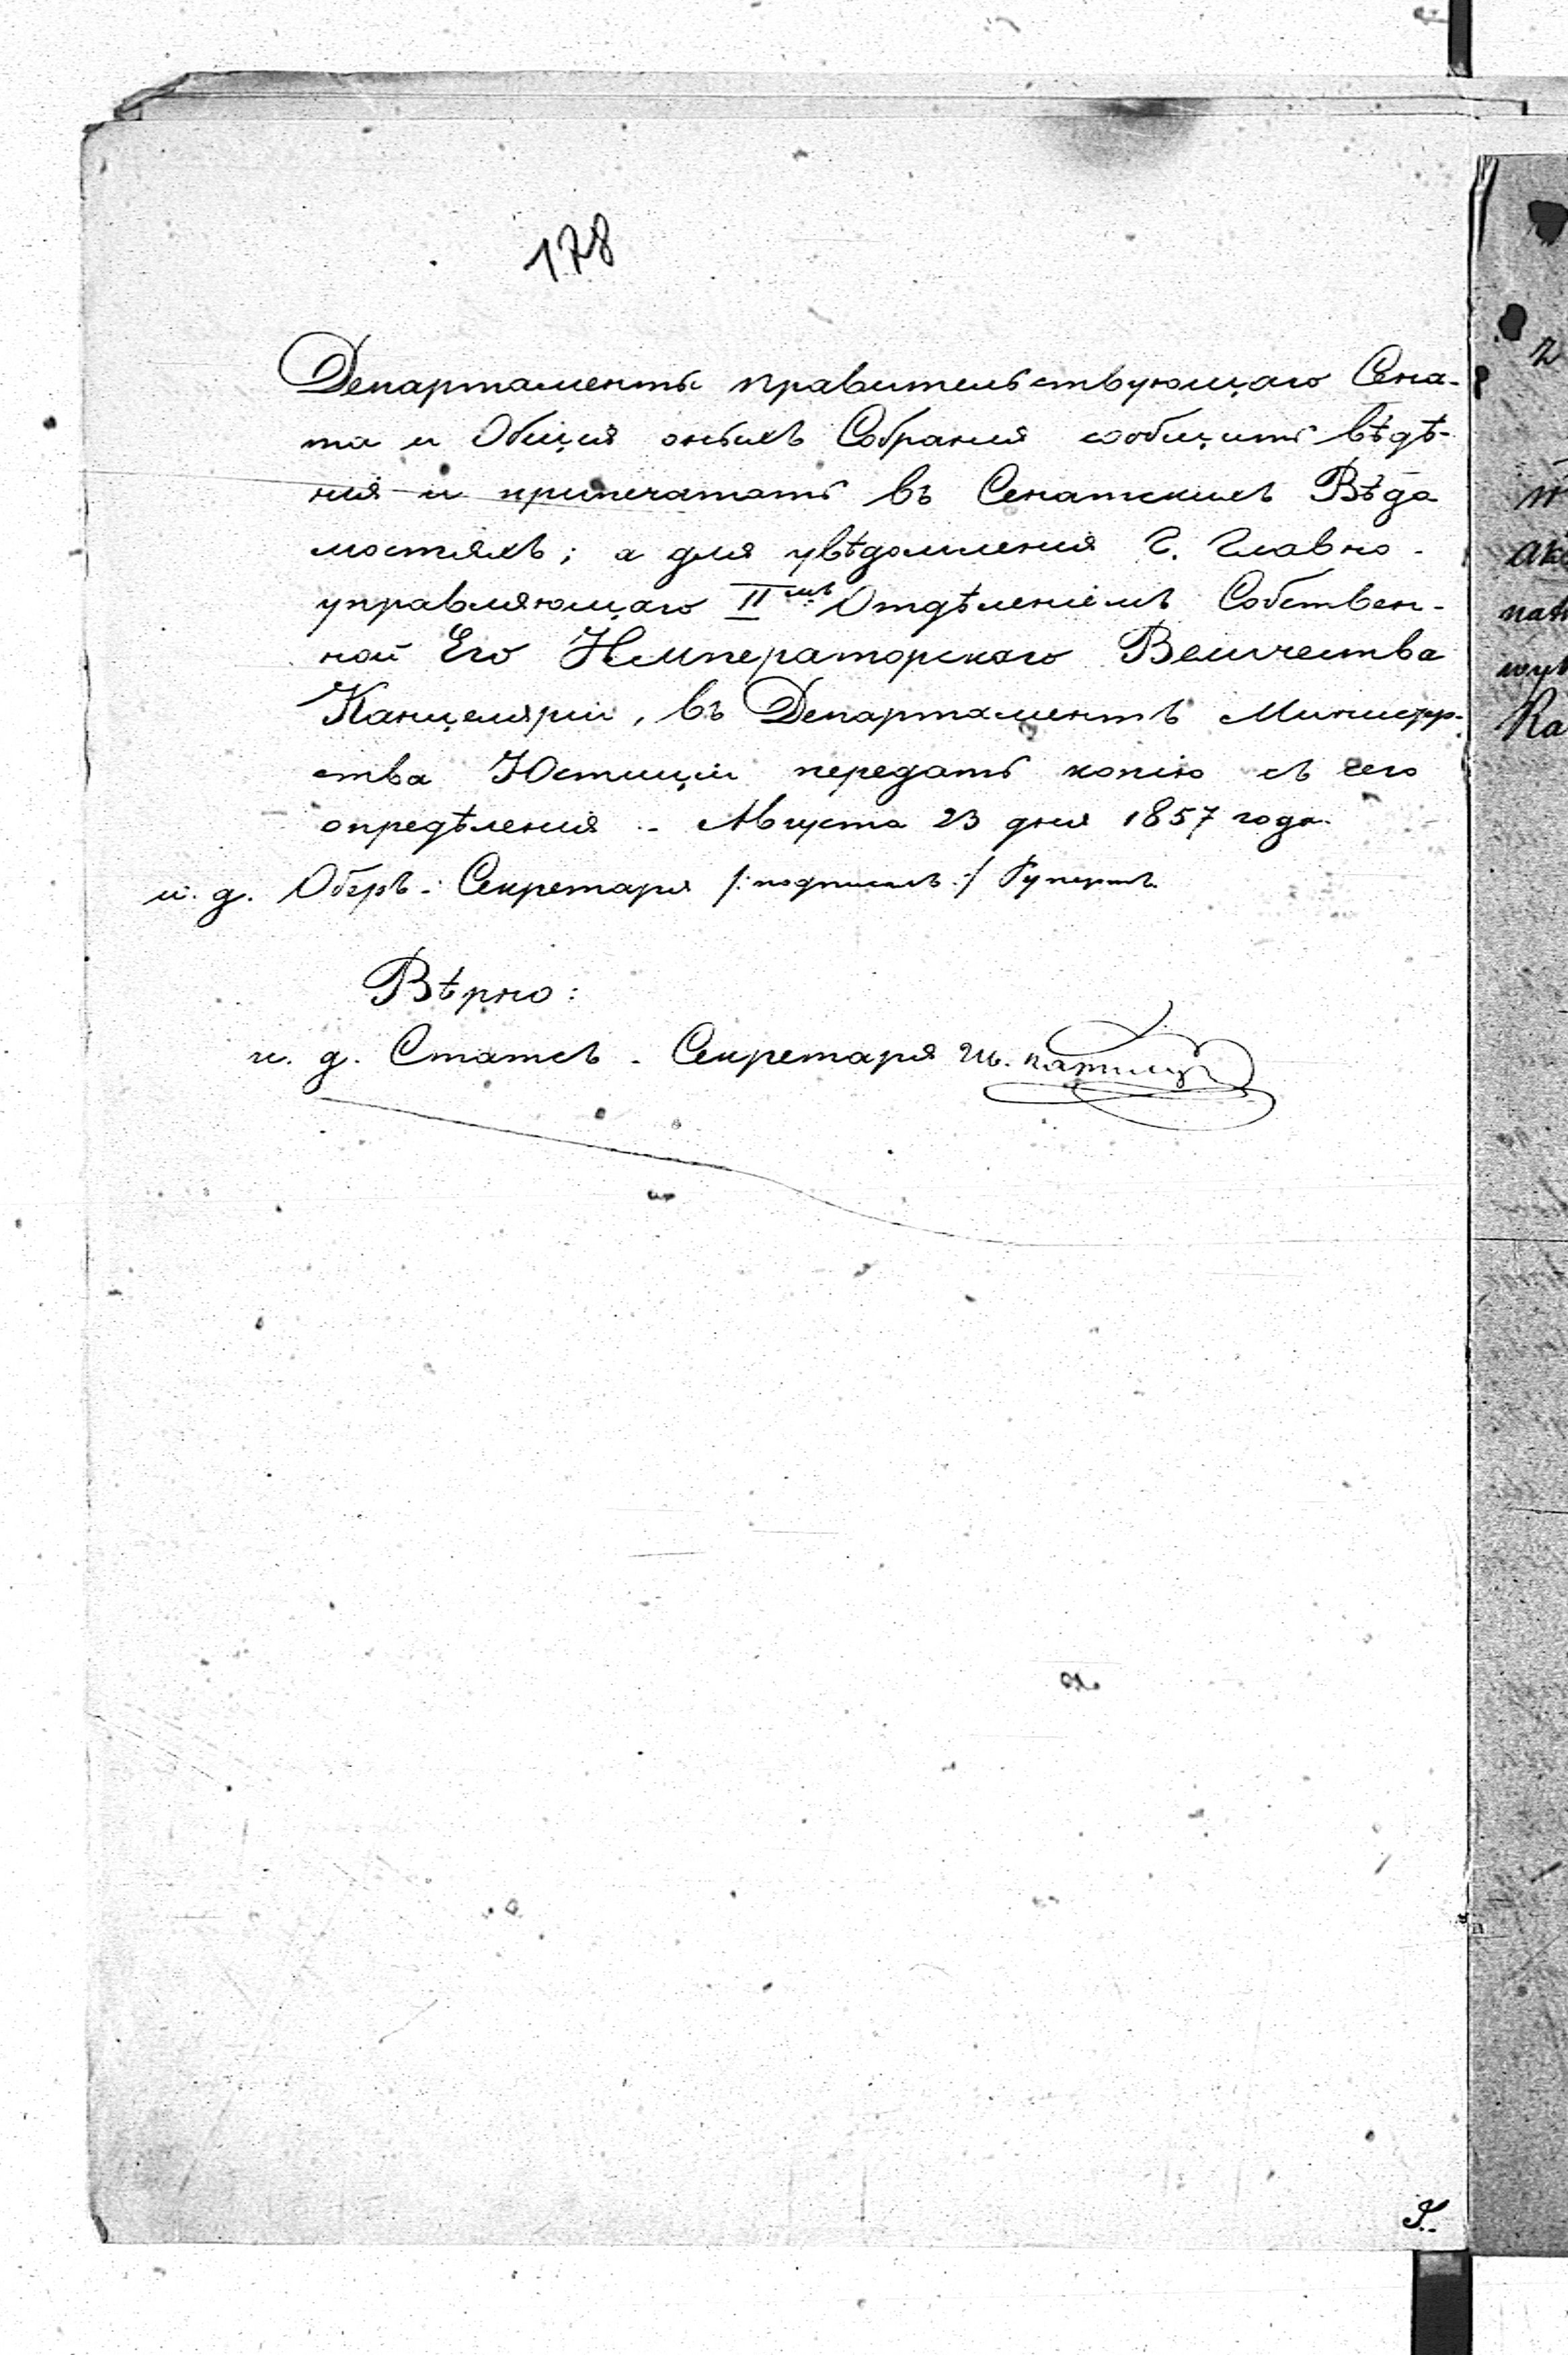 178
Департаменты правительствующаго Сена-
та и Общія оныхъ Собранія сообщить вѣдѣ-
нія и припечатать въ Сенатскихъ Вѣдо
мостяхъ; а для увѣдомленія Г. Главно-
управляющаго II мъ Отдѣленіемъ Собствен-
ной Его Императорскаго Величества
Канцеляріи, въ Департаментъ Министер-
ства Юстиціи передать копію съ сего
опредѣленія .. Августа 23 дня 1857 года.
и. д. Оберъ-Секретаря /:подписалъ:/
Вѣрно:
и. д. Статсъ-Секретаря